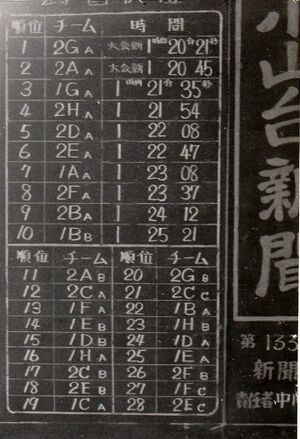 順位 チーム 時間
1 2GA 大会新 1時間20分21秒
2 2AA 大会新 1 20 45
3 1GA 1時間21分35秒
4 2HA 1 21 54
5 2DA 1 22 08
6 2EA 1 22 47
7 1AA 1 23 08
8 2FA 1 23 37
9 2BA 1 24 12
10 1BB 1 25 21
順位 チーム 順位 チーム
11 2AB 20 2GB
12 2CA 21 2CC
13 1FA 22 1BA
14 1EB 23 1HB
15 1DB 24 1DA
16 1HA 25 1EA
17 2CB 26 2FB
18 2EB 27 1FC
19 1CA 28 2EC
小山台新聞
第133
新聞
責任者 中